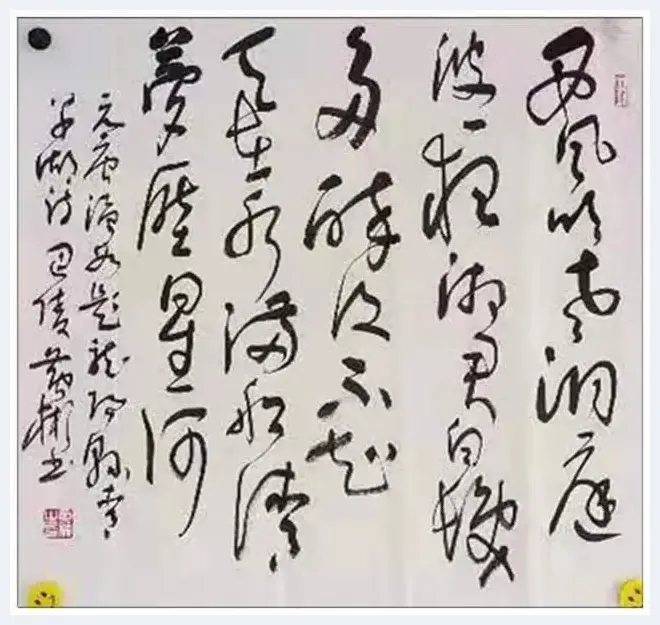 西風吹老洞庭
波一夜湘君白髮
多醉後不知
天在水满船清
夢壓星河
元唐温如題龙阳縣青
草湖诗巴陵彬书